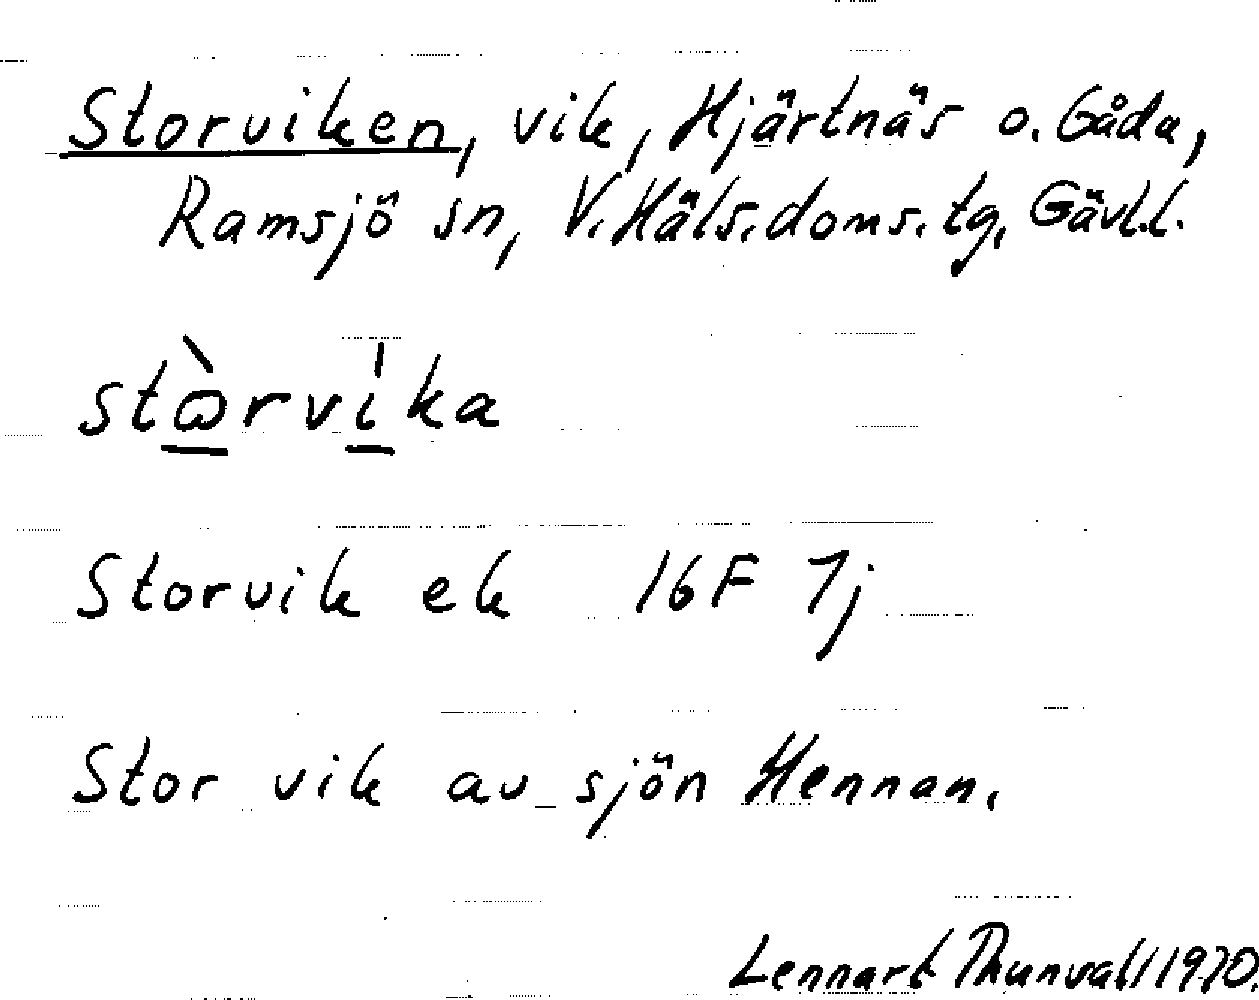 Storviken, vik, Hjärtnäs o. Gåda,
Ramsjö sn, V. Häls. doms. tg, Gävl.l.
stὼrvìka
Storvik ek 16F 7j
Stor vik av sjön Hennan.
Lennart Thunvall 1970